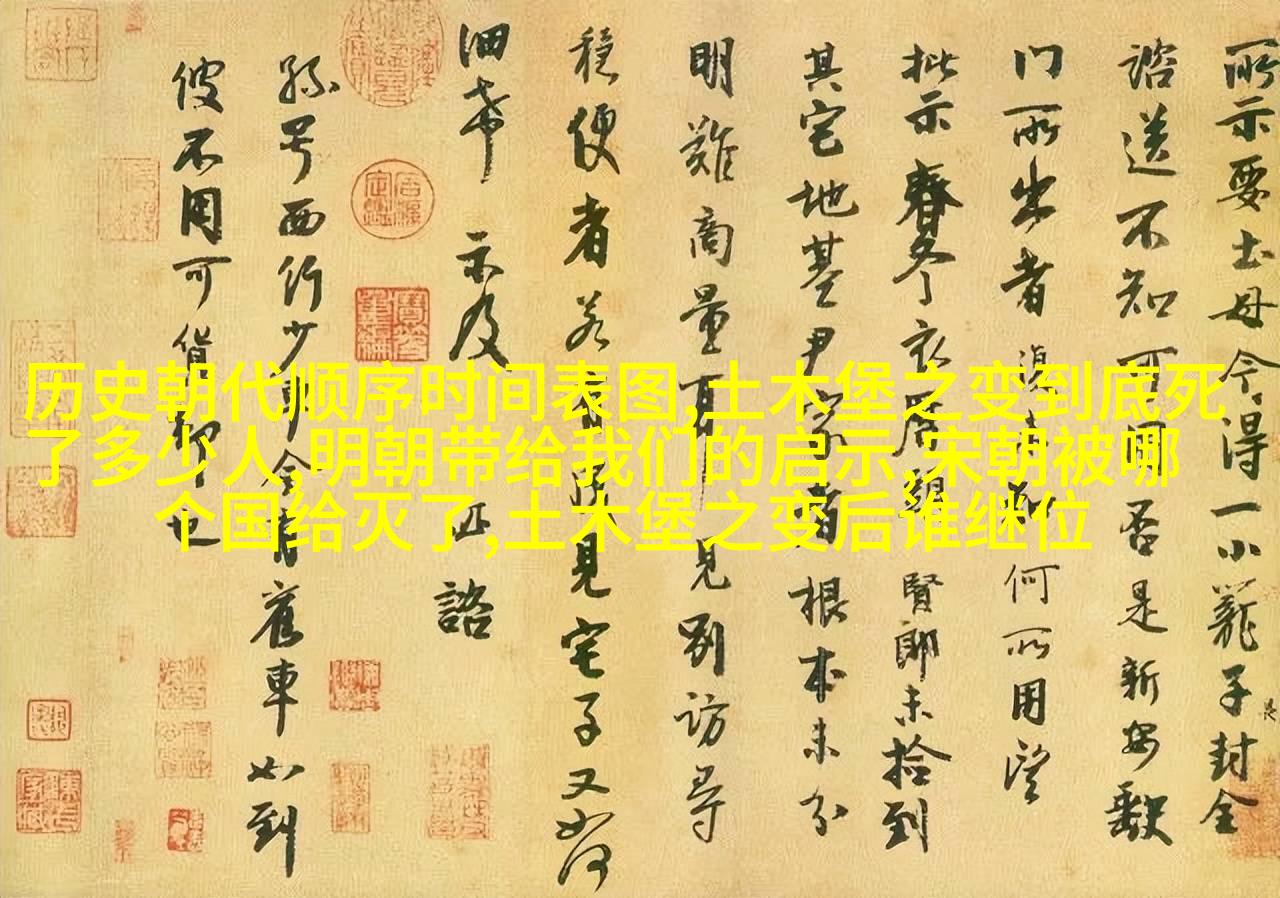 历史朝代顺序时间表图,土木堡之变到底死
了多少人,明朝带给我们的启示,宋朝被哪
个国给灭了,土木堡之变后谁继位
所示要土母今得一小籠子封全
諮送不知可用否是新安
门所出者 何所用望
批示春冬衣 賢郎未拾到
其宅地基尹家者根本未分
明難商量 見别訪尋
穩便者若 見宅子又如何
細希 示及 諮
孫号西行少車今有舊車如到
彼不用可貨却也